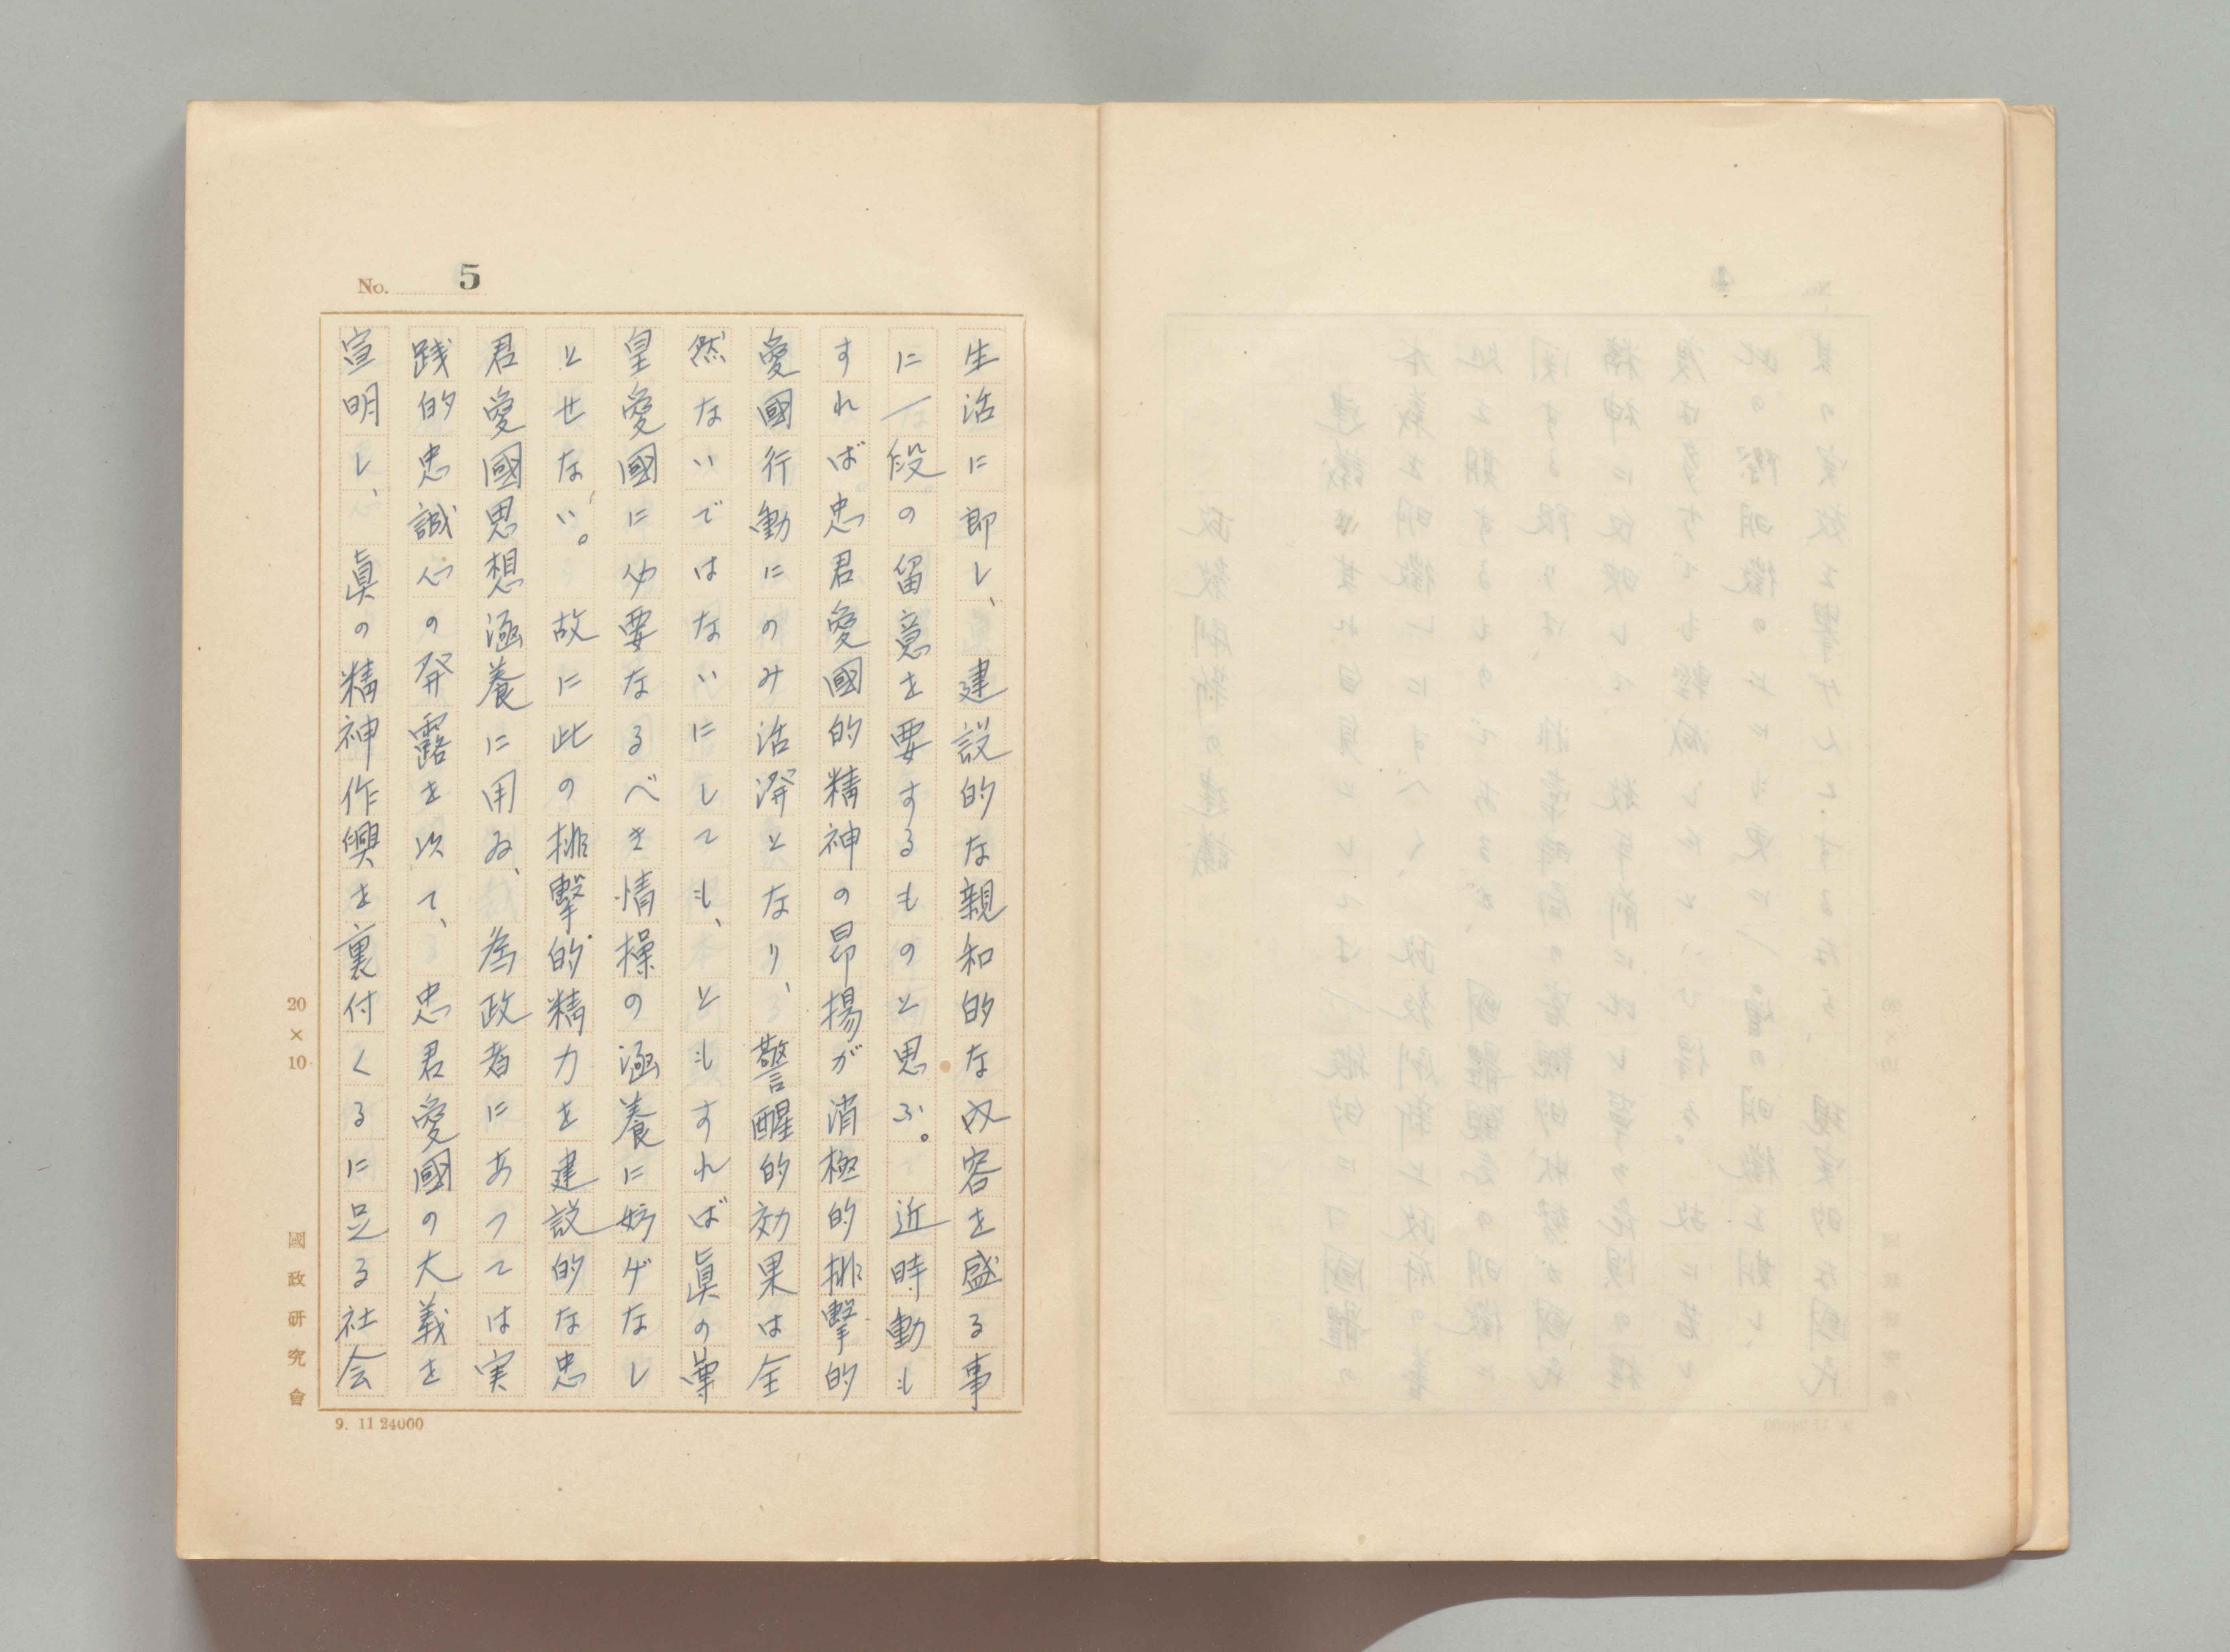 No. 5
生活に即し、建設的な親和的な内容を盛る事
に一段の留意を要するものと思ふ。近時動も
すれば忠君愛國的精神の昂揚が消極的排擊的
愛國行動にのみ活潑となり、警醒的効果は全
然ないではないにしても、ともすれば眞の尊
皇愛國に必要なるべき情操の涵養に妨げなし
とせない。故に此の排擊的精力を建設的な忠
君愛國思想涵養に用ゐ、為政者にあつては実
践的忠誠心の発露を以て、忠君愛國の大義を
宣明し、眞の精神作興を裏付くるに足る社会
20×10
國政研究會
9. 11 24000